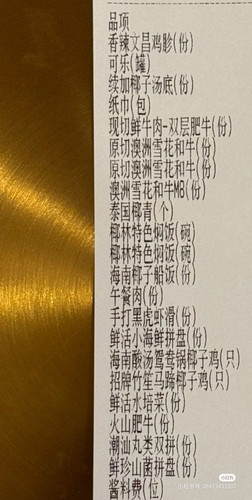 品项
香辣文昌鸡胗(份)
可乐(罐)
续加椰子汤底(份)
纸巾(包)
现切鲜牛肉-双层肥牛(份)
原切澳洲雪花和牛(份)
原切澳洲雪花和牛(份)
澳洲雪花和牛M8(份)
泰国椰青(个)
椰林特色焖饭(碗)
椰林特色焖饭(碗)
海南椰子船饭(份)
午餐肉(份)
手打黑虎虾滑(份)
鲜活小海鲜拼盘(份)
海南酸汤鸳鸯锅椰子鸡(只)
招牌竹笙马蹄椰子鸡(只)
鲜活水培菜(份)
火山肥牛(份)
潮汕丸类双拼(份)
鲜珍山菌拼盘(份)
酱料费(位)
小红书